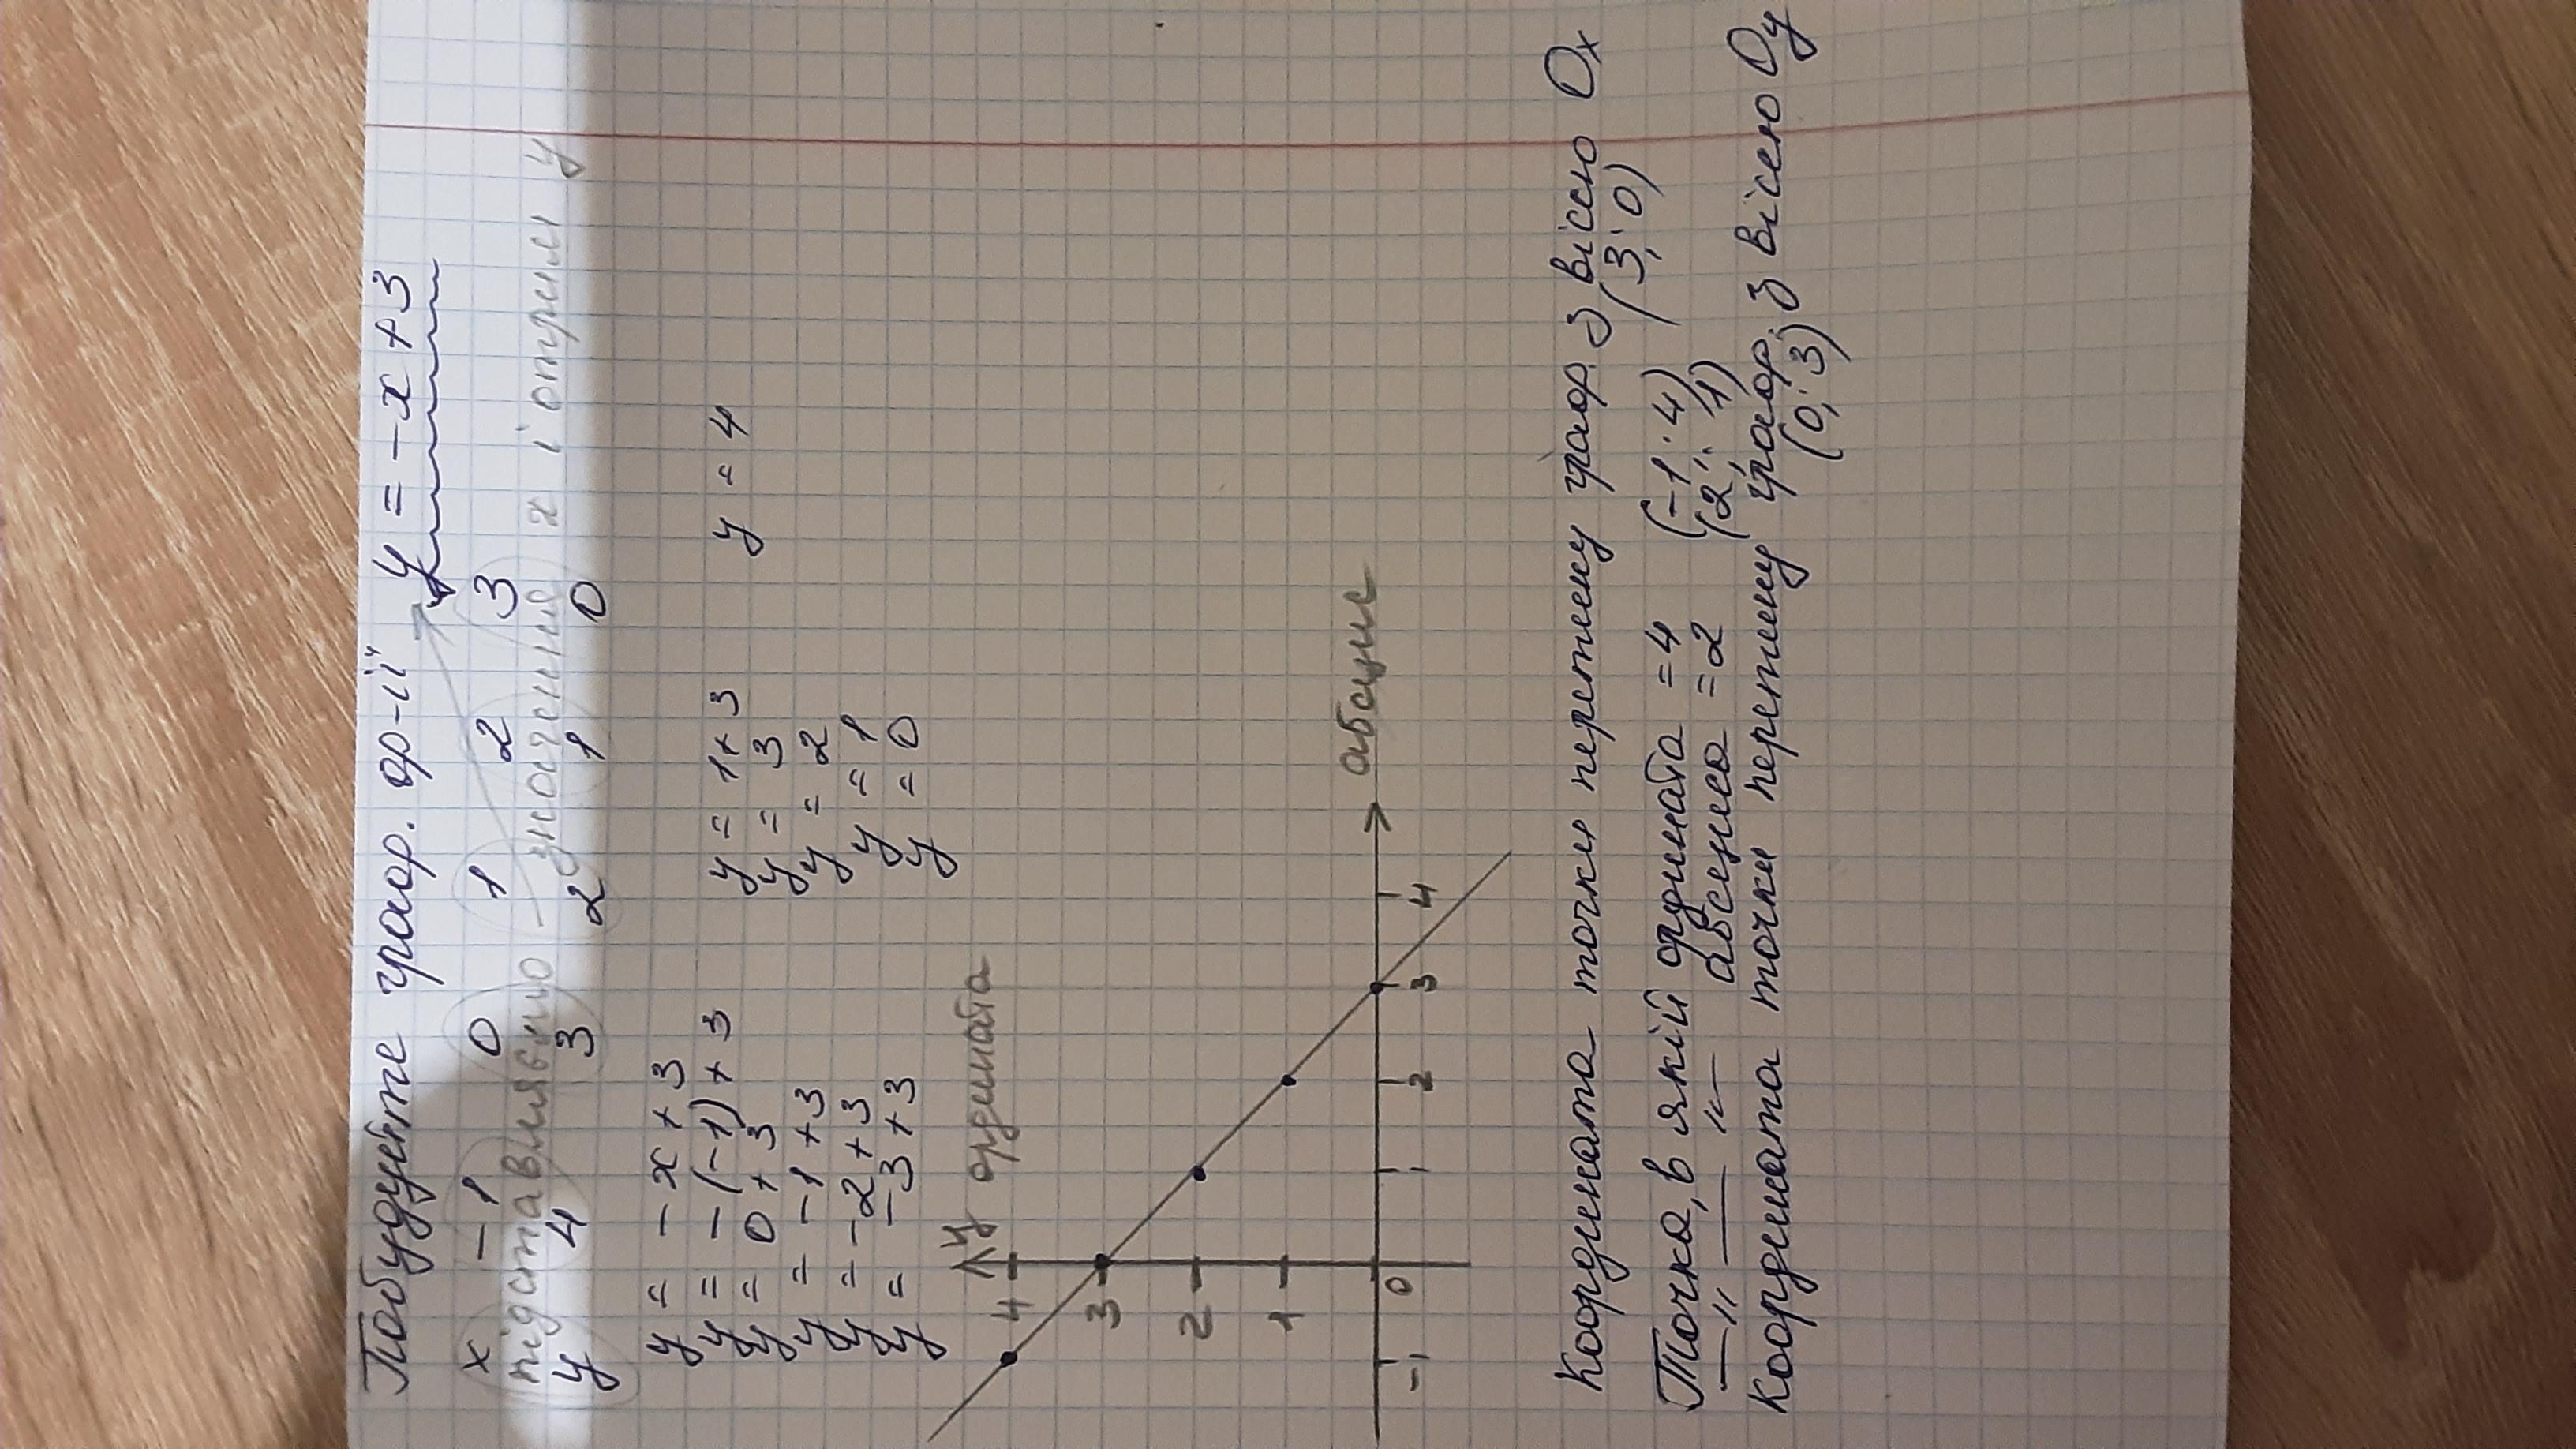 Побудуйте граф. ф-ії y = -x + 3
x -1 0 1 2 3
підставляємо значення x і отрим y
y 4 3 2 1 0
y = -x + 3
y = -(-1) + 3 y = 1 + 3 y = 4
y = 0 + 3 y = 3
y = -1 + 3 y = 2
y = -2 + 3 y = 1
y = -3 + 3 y = 0
y ордината
4
3
2
1
-1 0 1 2 3 4 абсцис
Координата точки перетену граф. з вісею Ox
(3; 0)
Точка, в якій ордината = 4 (-1; 4)
—"— —"— абсциса = 2 (2; 1)
Координата точки перетину граф. з вісею Oy
(0; 3)